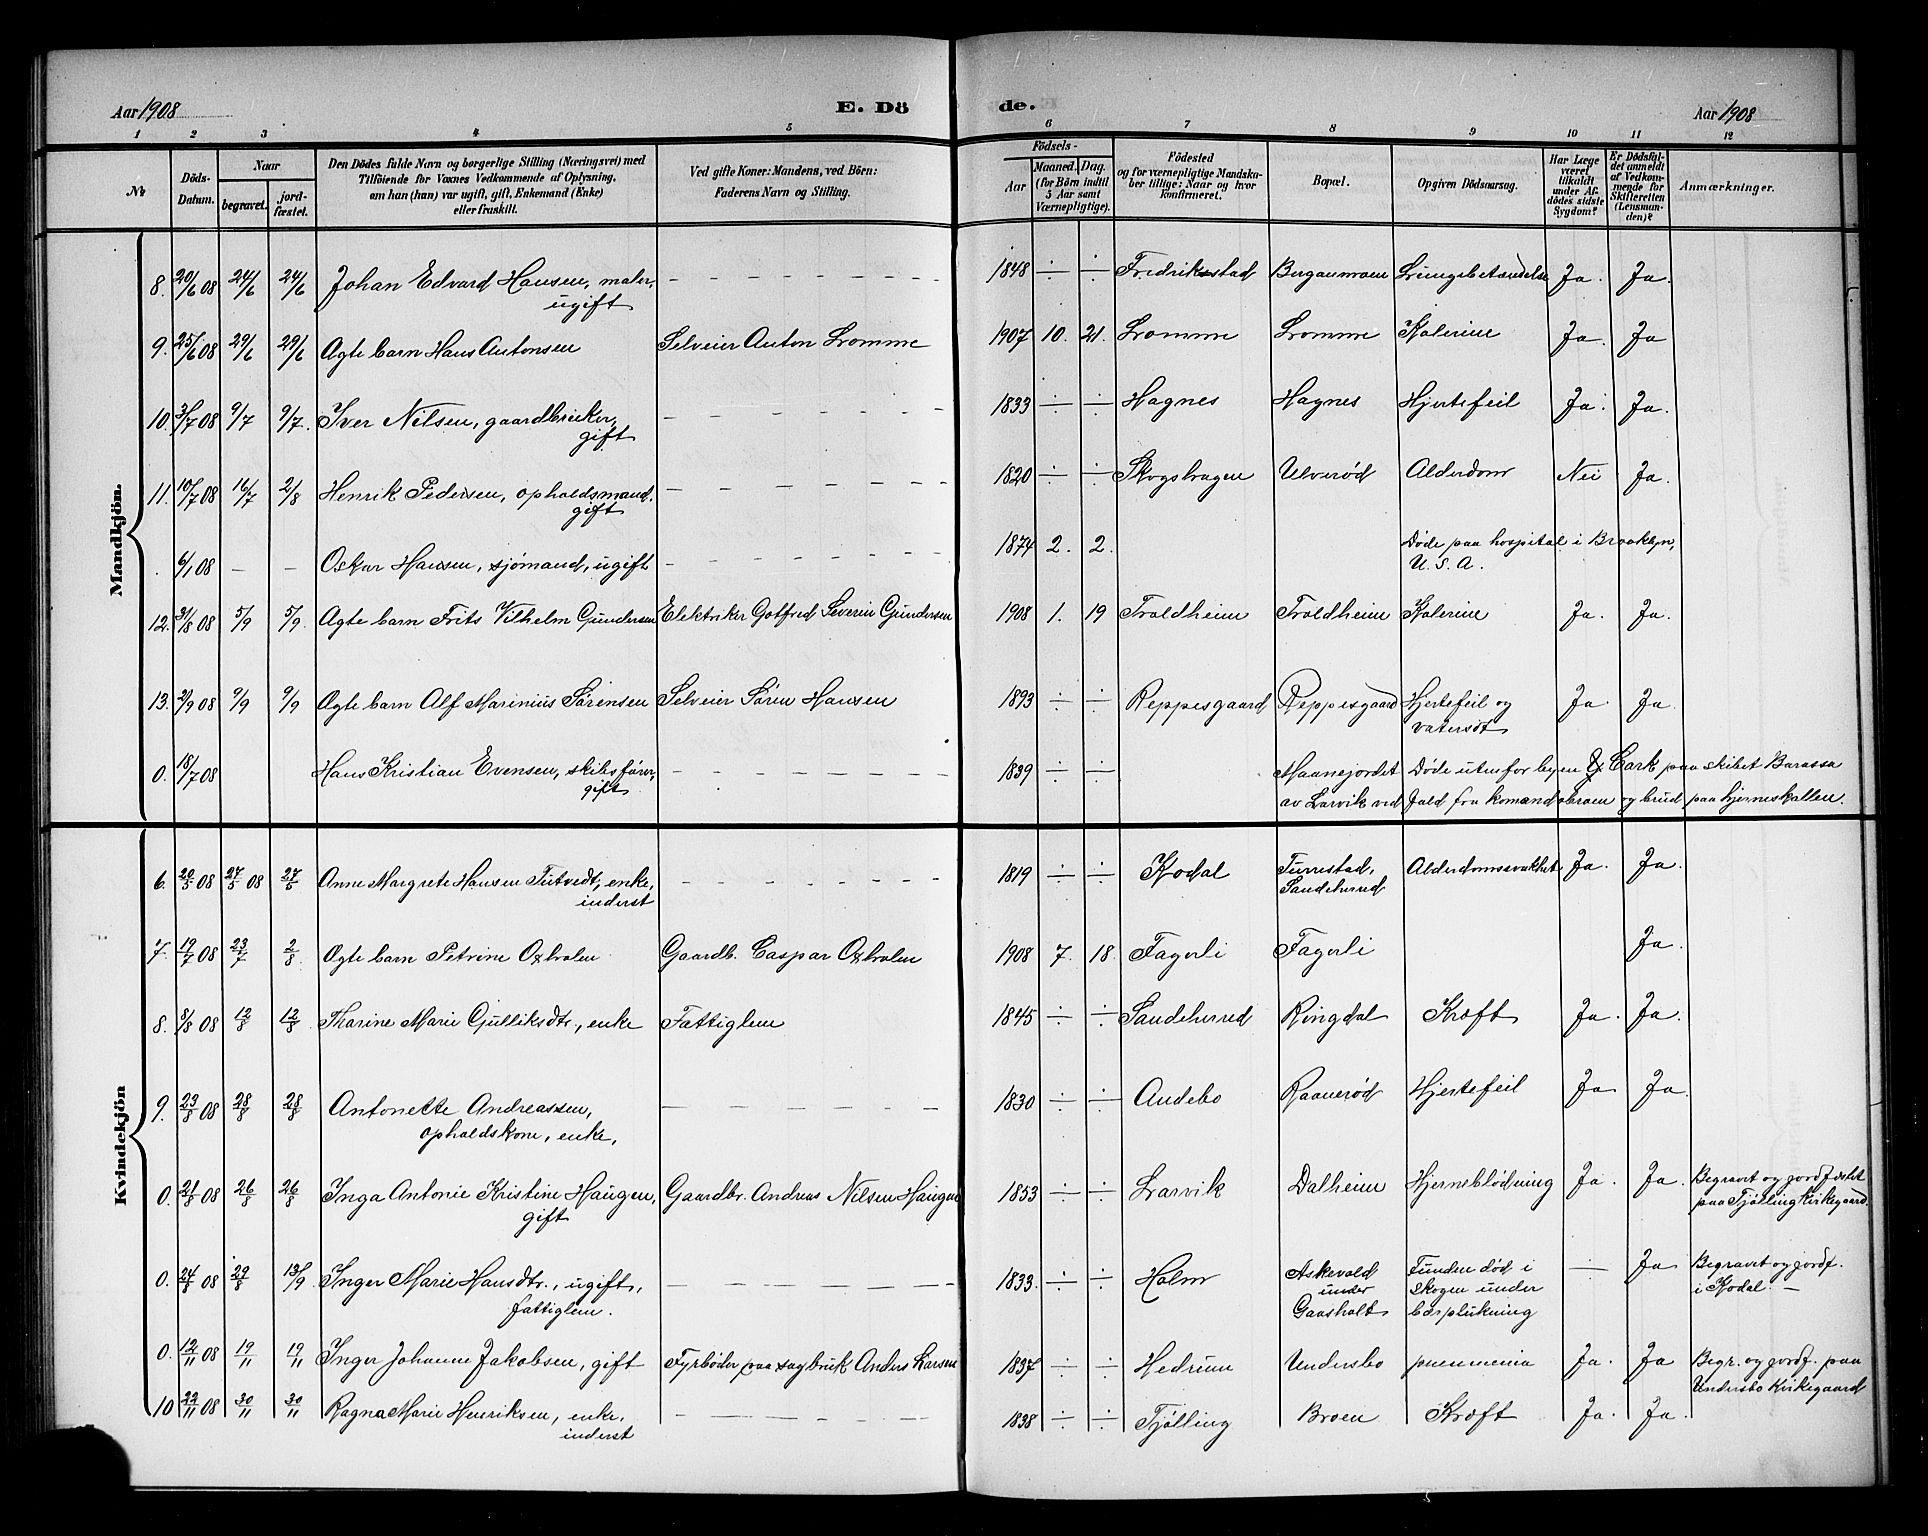 Aar 1908
E. Dö
de.
Aar 1908
1 2 3 4 5 6 7 8 9 10 11 12
№
Döds-Datum.
Naar
begravet.
jord-fæstet.
Den Dödes fulde Navn og borgerlige Stilling (Næringsvei) med
Tilföiende for Voxnes Vedkommende af Oplysning,
om han (han) var ugift, gift, Enkemand (Enke)
eller fraskilt.
Ved gifte Koner: Mandens, ved Börn:
Faderens Navn og Stilling.
Födsels-
Aar
Maaned. Dag.
(for Börn indtil
5 Aar samt
Værnepligtige).
Födested
og for værnepligtige Mandska-
ber tillige: Naar og hvor
konfirmeret.
Bopæl.
Opgiven Dödsaarsag.
Har Læge
været
tilkaldt
under Af-
dödes sidste
Sygdom?
Er Dödsfal-
det anmeldt
af Vedkom-
mende for
Skifteretten
(Lensman-
den)?
Anmærkninger.
Mandkjön.
8. 20/6 08 24/6 24/6 Johan Edvard Hansen, maler, ugift — 1848 ÷ ÷ Fredrikstad Berganmoen Lungebetændelse Ja. Ja.
9. 25/6 08 29/6 29/6 Ægte barn Hans Antonsen Selveier Anton Lromme 1907 10. 21. Lromme Lromme Kolerine Ja. Ja
10. 3/7 08 9/7 9/7. Iver Nilsen, gaardbruker, gift — 1833 ÷ ÷ Hagnes Hagnes Hjertefeil Ja. Ja.
11. 10/7 08 16/7 2/8 Henrik Pedersen, opholdsmand. gift — 1820 ÷ ÷ Skogshagen Ulverød Alderdom Nei Ja.
. 6/1 08 — — Oskar Hansen, sjømand, ugift — 1874 2. 2. Døde paa hospital i Brooklyn, U. S. A.
12. 31/8 08 5/9 5/9. Ægte barn Frits Vilhelm Gundersen Elektriker Gotfred Severin Gundersen 1908 1. 19 Troldheim Troldheim Kolerine Ja. Ja.
13. 2/9 08 9/9 9/9 Ægte barn Alf Marinius Sørensen Selveier Søren Hansen 1893 ÷ ÷ Reppesgaard Reppesgaard Hjertefeil og vatersot Ja. Ja
0. 18/7 08 Hans Kristian Evensen, skibsfører, gift — 1839 ÷ ÷ Maanejordet Døde utenfor byen Cark paa skibet Barassa
av Larvik ved fald fra komandobroen og brud paa hjerneskallen.
Kvindekjön
6. 20/5 08 27/5 08 27/5 Anne Margrete Hansen Tutvedt, enke, inderst — 1819 ÷ ÷ Kodal Furrestad, Sandeherred Alderdomssvakhet Ja. Ja.
7. 19/7 08 23/7 2/8 Ægte barn Petrine Oxholen Gaardb. Caspar Oxholen 1908 7. 18. Fagerli Fagerli Ja.
8. 8/8 08 12/8 12/8 Tharine Marie Gulliksdtr., enke Fattiglem 1845 ÷ ÷ Sandeherred Ringdal Kræft Ja. Ja.
9. 23/8 08 28/8 28/8 Antonette Andreassen, opholdskone, enke, — 1830 ÷ ÷ Andebo Raanerød Hjertefeil Ja Ja.
0. 21/8 08 26/8 26/8 Inga Antonie Kristine Haugen, gift Gaardbr. Andreas Nilsen Haugen 1853 ÷ ÷ Larvik Dalheim Hjerneblødning Ja. Ja. Begravet og jordfæstet paa Tjølling Kirkegaard.
0. 24/8 08 29/8 13/9 Inger Marie Hansdtr., ugift, fattiglem. — 1833. ÷ ÷ Holm Askevold under Gaasholt Funden død i skogen under bærplukning — Ja Begravet og jordf. i Kodal. —
0. 12/11 08 19/11 19/11 Inger Johanne Jakobsen, gift Fyrbøder paa sagbruk Anders Larsen 1837 ÷ ÷ Hedrum Undersbo pneumenia Ja. Ja Begr. og jordf. paa Undersbo Kirkegaard
10 22/11 08 30/11 30/11 Ragna Marie Henriksen, enke, inderst — 1838 ÷ ÷ Tjølling Broen Kræft Ja. Ja.